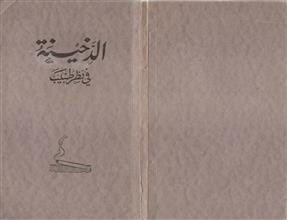 الدخينة
في نظر طبيب